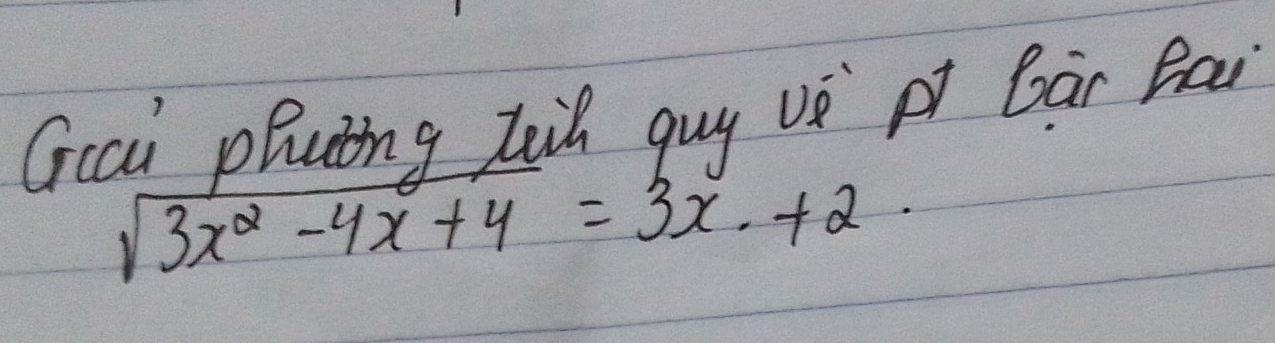 Giải phương trình quy về pt bậc hai
√(3x² - 4x + 4) = 3x + 2.